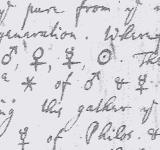 pure from yᵉ
generation. Where
♂, ♀, ☿, ☉. The
* of ♂ & ☿
this gather yᵉ
☿ of Philos. &